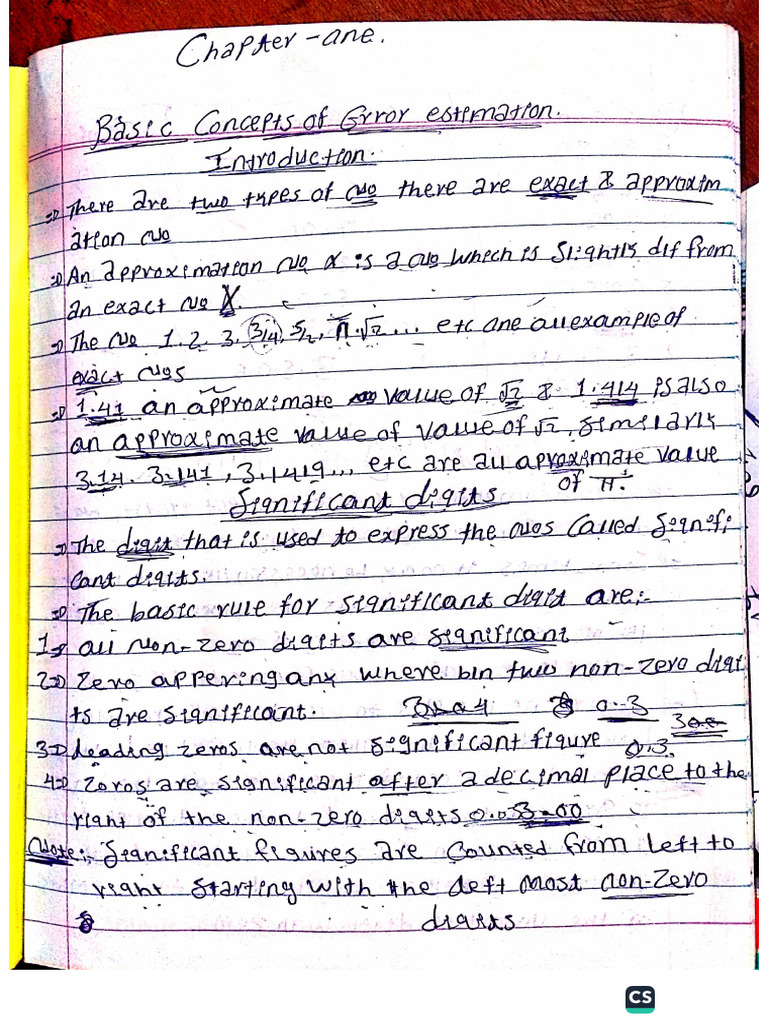 Chapter -one.
Basic Concepts of Error estimation.
Introduction.
⇒ There are two types of no there are exact & approxim
ation no
⇒ An approximation no x is a no which is slightly dif from
an exact no X.
⇒ The no 1. 2. 3. 3/4, 5/2, π. √2 ... etc are all example of
exact nos
⇒ 1.41 an approximate value of √2 & 1.414 is also
an approximate value of value of √2, similarly
3.14. 3.141, 3.1419 ... etc are all aproximate value
of π.
Significant digits
⇒ The digit that is used to express the nos called signifi
cant digits.
⇒ The basic rule for significant digit are:-
1⇒ all non-zero digits are significant
2⇒ Zero appering any where b/n two non-zero digi
ts are significant. 0.3
3⇒ leading zeros are not significant figure 0.3
4⇒ Zeros are significant after a decimal place to the
right of the non-zero digits 0.053.00
Note:- Significant figures are counted from left to
right starting with the left most non-zero
digits
CS